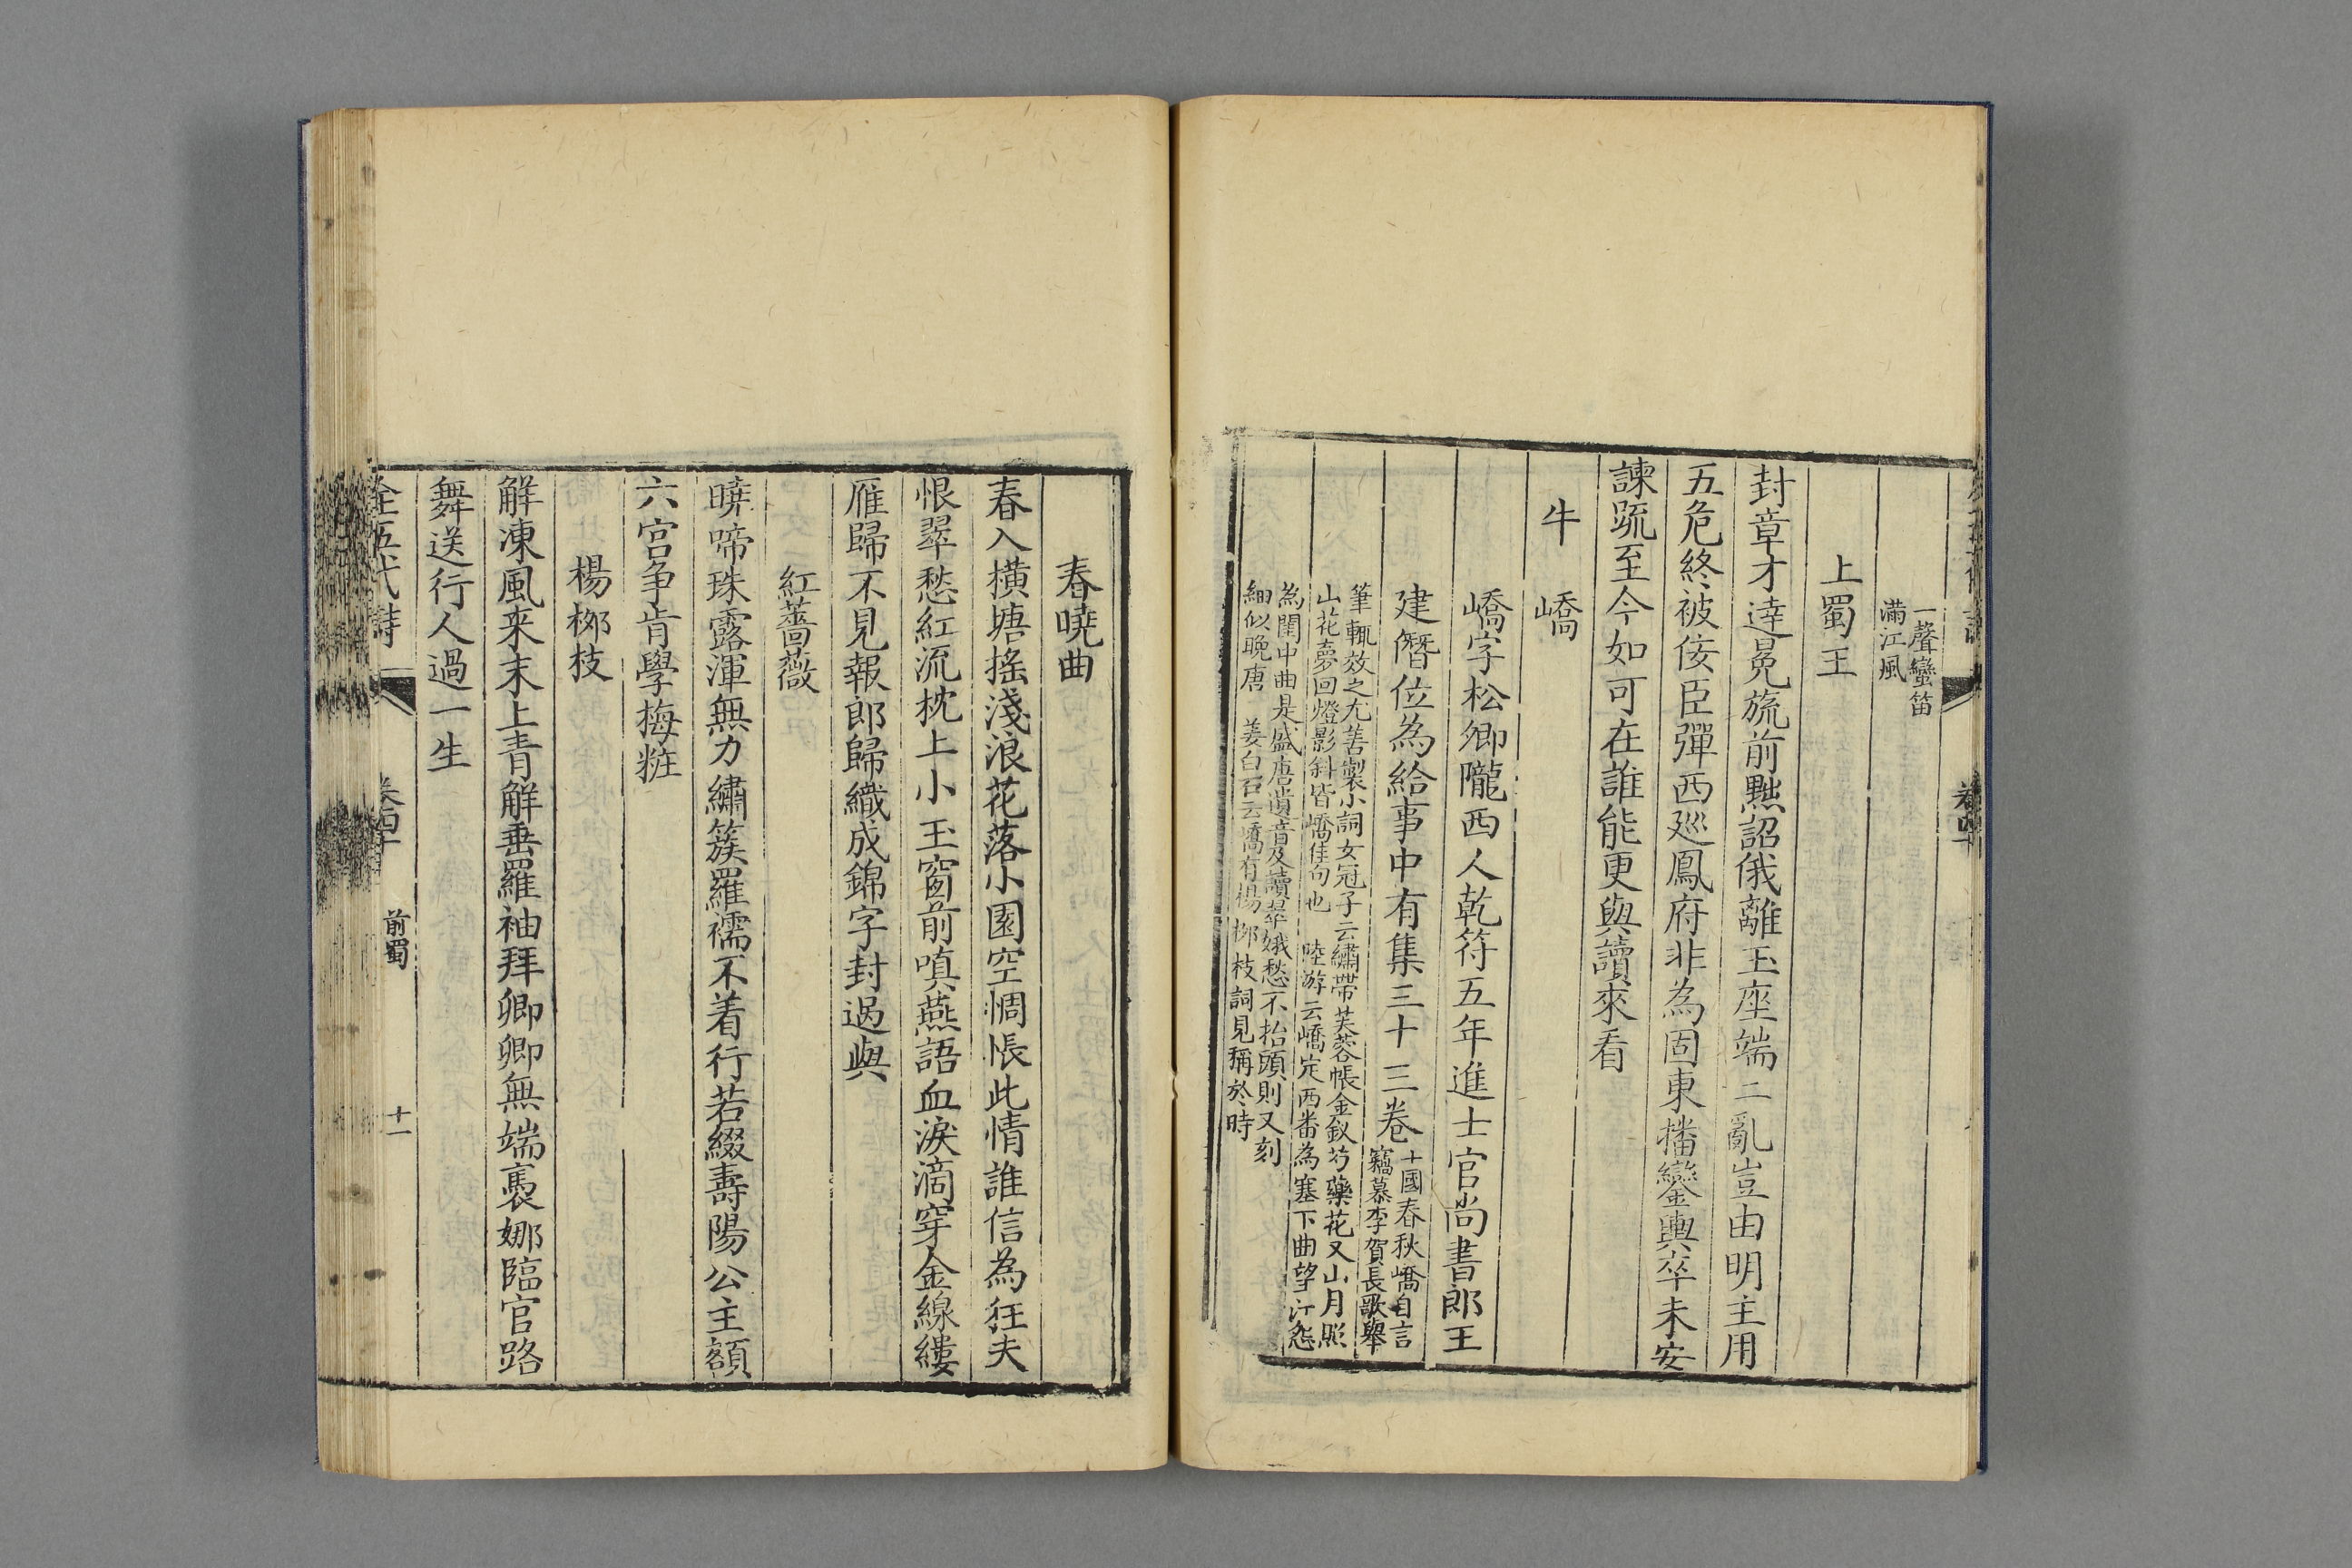 一聲蠻笛
滿江風
上蜀王
封章才達冕旒前黜詔俄離玉座端二亂豈由明主用
五危終被佞臣彈西廵鳳府非為固東播鑾輿卒未安
諫疏至今如可在誰能更與讀來看
牛嶠
嶠字松卿隴西人乾符五年進士官尚書郎王
建僭位為給事中有集三十三卷
十國春秋嶠自言
竊慕李賀長歌舉
筆輒效之尤善製小詞女冠子云繡帶芙蓉帳金釵芍藥花又山月照
山花夢回燈影斜皆嶠佳句也 陸游云嶠定西番為塞下曲望江怨
為閨中曲是盛唐遺音及讀翠娥愁不抬頭則又刻
細似晚唐 姜白石云嶠有楊栁枝詞見稱於時
春曉曲
春入橫塘搖淺浪花落小園空惆悵此情誰信為狂夫
恨翠愁紅流枕上小玉窗前嗔燕語血淚滴穿金線縷
雁歸不見報郎歸織成錦字封過與
紅薔薇
曉啼珠露渾無力繡簇羅襦不着行若綴壽陽公主額
六宮争肯學梅粧
楊栁枝
解凍風来末上青解垂羅袖拜卿卿無端裊娜臨官路
舞送行人過一生
全五代詩 卷四十 前蜀 十一